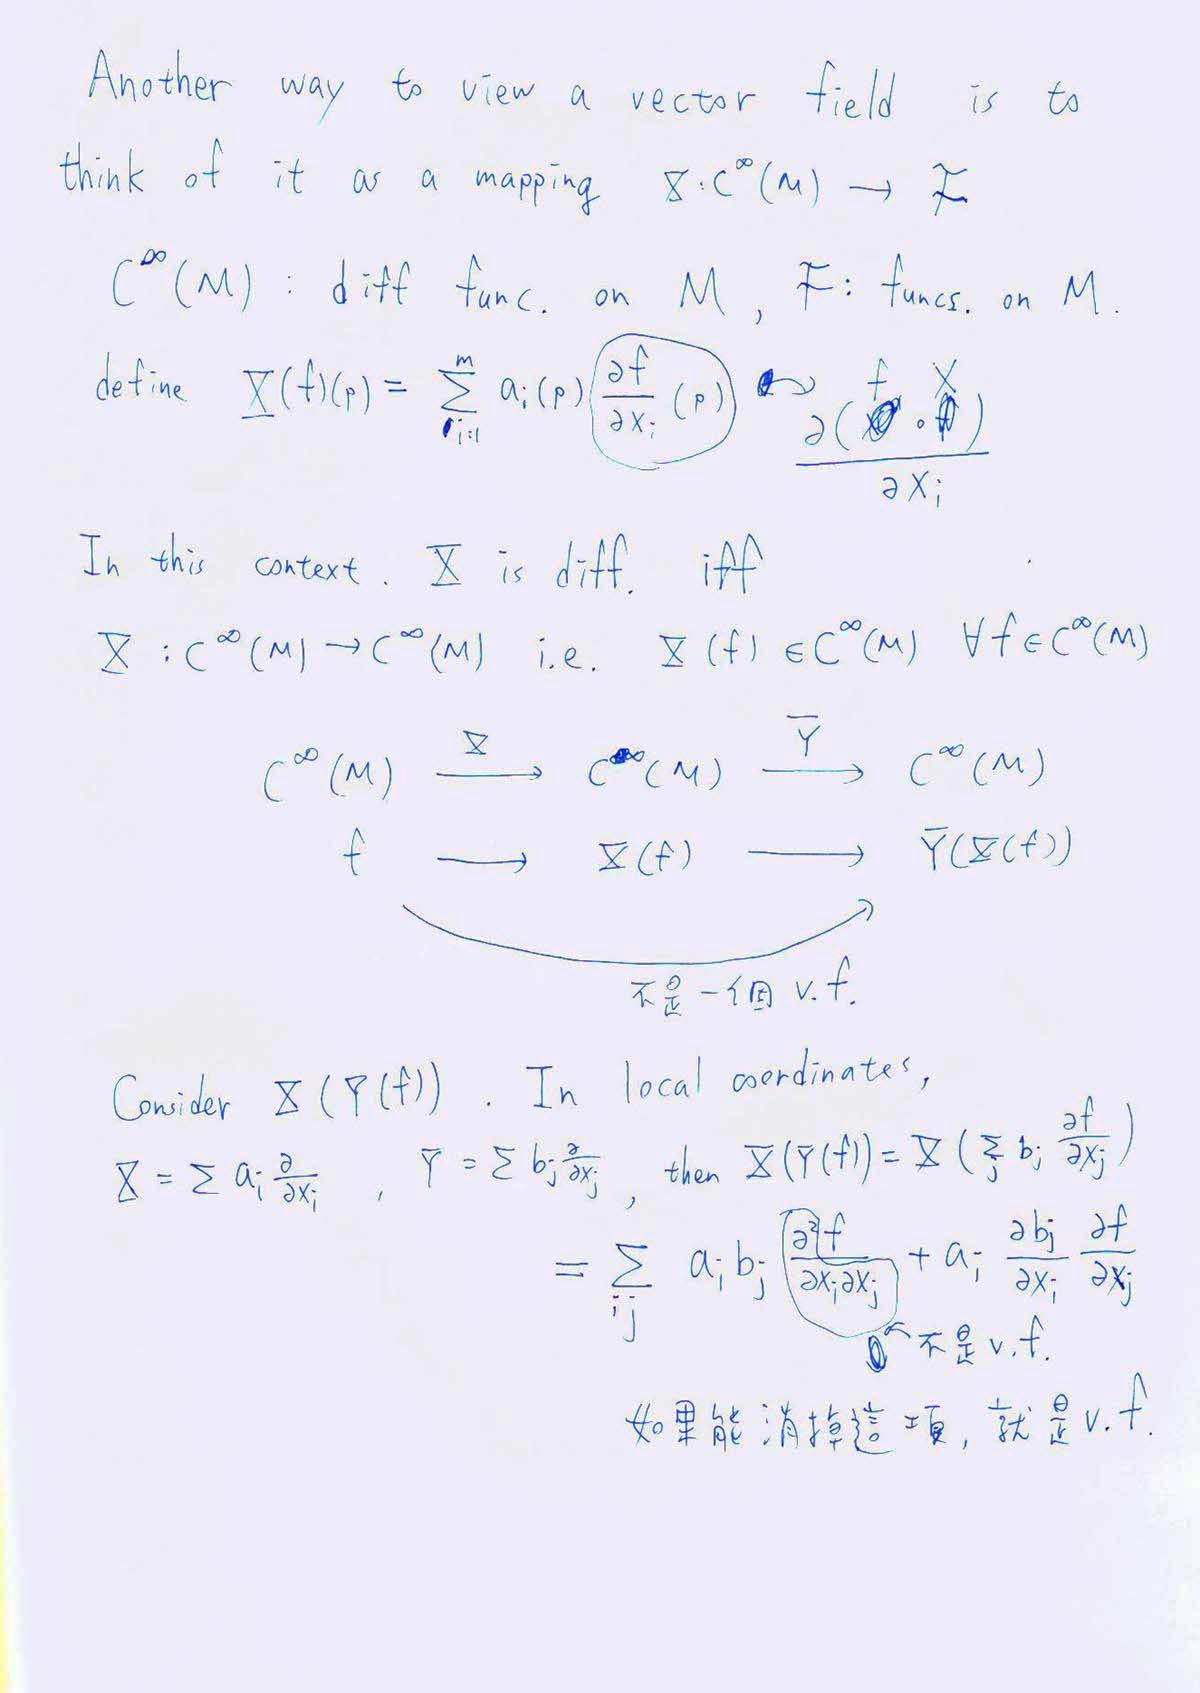 Another way to view a vector field is to
think of it as a mapping X : C^∞(M) → 𝓕
C^∞(M) : diff func. on M, 𝓕 : funcs. on M.
define X(f)(p) = ∑_{i=1}^{m} a_i(p) ∂f/∂x_i (p) ∂(f∘X)/∂x_i
In this context. X is diff. iff
X : C^∞(M) → C^∞(M) i.e. X(f) ∈ C^∞(M) ∀f ∈ C^∞(M)
C^∞(M) —X→ C^∞(M) —Y→ C^∞(M)
f ⟶ X(f) ⟶ Y(X(f))
不是一個 v.f.
Consider X(Y(f)). In local coordinates,
X = ∑ a_i ∂/∂x_i , Y = ∑ b_j ∂/∂x_j , then X(Y(f)) = X(∑_j b_j ∂f/∂x_j)
= ∑_{ij} a_i b_j ∂²f/∂x_i∂x_j + a_i ∂b_j/∂x_i ∂f/∂x_j
不是 v.f.
如果能消掉這項, 就是 v.f.